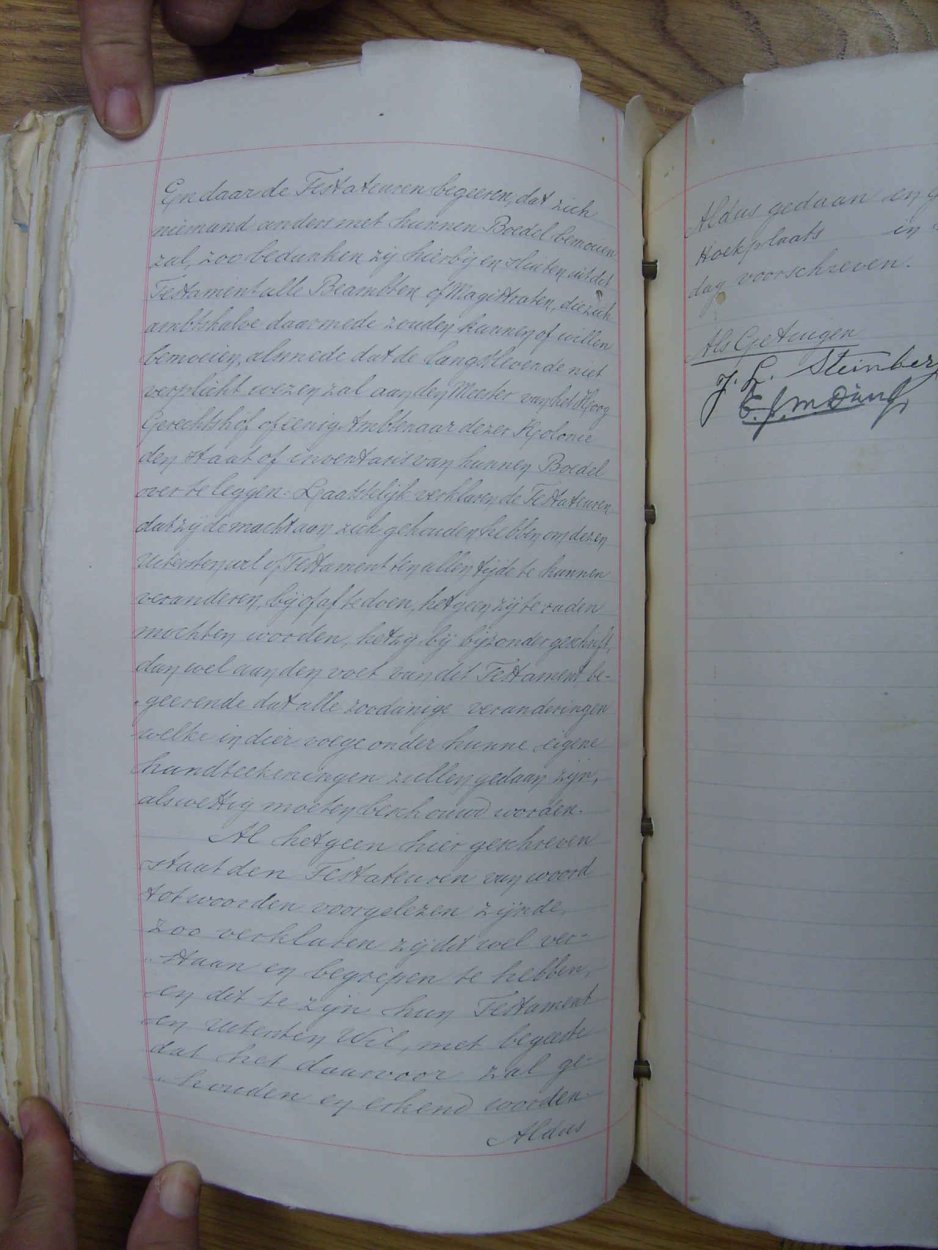 En daar de Testateuren begeeren, dat zich
niemand anders met hunnen Boedel bemoeien
zal, zoo bedanken zij hierbij en sluiten uit dit
Testament alle Beambten of Magistraten, die zich
ambtshalve daarmede zouden kunnen of willen
bemoeien, alsmede dat de langstlevende niet
verplicht wezen zal aan den Meester van het Hoog
Gerechtshof of eenig Ambtenaar dezer Kolonie
den staat of inventaris van hunnen Boedel
over te leggen. Laatstelijk verklaren de Testateuren
dat zij de macht aan zich gehouden hebben om dezen
Uitersten wil of Testament ten allen tijde te kunnen
veranderen, bij of af te doen, hetgeen zij te raden
mochten worden, hetzij bij bijzonder geschrift,
dan wel aan den voet van dit Testament, be-
geerende dat alle zoodanige veranderingen
welke in dier voege onder hunne eigene
handteekeningen zullen gedaan zijn,
als wettig moeten beschouwd worden.
Al hetgeen hier geschreven
staat den Testateuren van woord
tot woorden voorgelezen zijnde,
zoo verklaren zij dit wel ver-
staan en begrepen te hebben,
en dit te zijn hun Testament
en Uitersten Wil, met begeerte
dat het daarvoor zal ge-
houden en erkend worden
Aldus
Aldus gedaan en
Hoekplaats in
dag voorschreven.
Als Getuigen
J. L. Steinberg